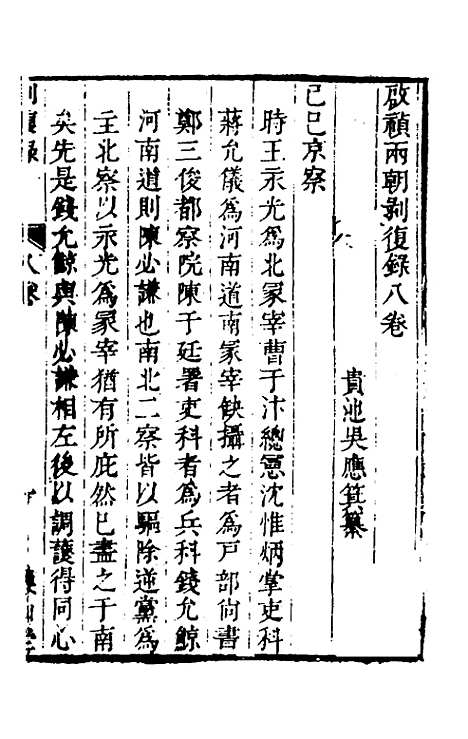 啟禎兩朝剝復錄八卷
貴池吳應箕纂
己巳京察
時王永光為北冢宰曹于汴總憲沈惟炳掌吏科
蔣允儀為河南道南冢宰缺攝之者為戶部尚書
鄭三俊都察院陳于廷署吏科者為兵科錢允鯨
河南道則陳必謙也南北二察皆以驅除逆黨為
主北察以永光為冢宰猶有所庇然已盡之于南
矣先是錢允鯨與陳必謙相左後以調護得同心
剝復錄
八卷